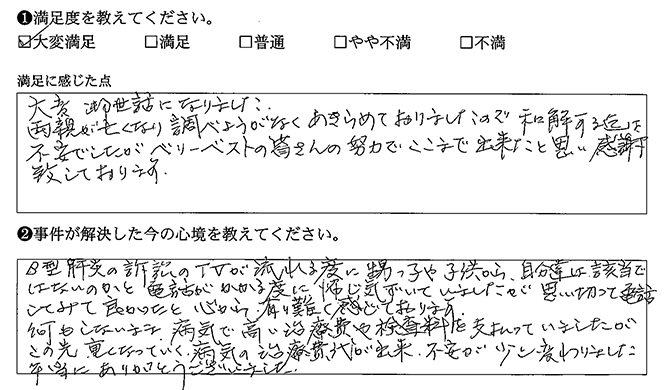 ❶満足度を教えてください。
☑大変満足 □満足 □普通 □やや不満 □不満
満足に感じた点
大変お世話になりました。
両親が亡くなり調べようがなくあきらめておりましたので和解する迄は
不安でしたがベリーベストの皆さんの努力でここまで出来たこと思い感謝
致しております。
❷事件が解決した今の心境を教えてください。
B型肝炎の訴訟のTVが流れる度に甥っ子や子供から、自分達は該当で
はないのかと電話がかかる度に怖じ気づいていましたが思い切って電話
してみて良かったと心から有り難く感じております。
何もしないまま病気で高い治療費や検査料を支払っていましたが
この先重くなっていく病気の治療費代が出来、不安が少し変わりました
本当にありがとうございました。